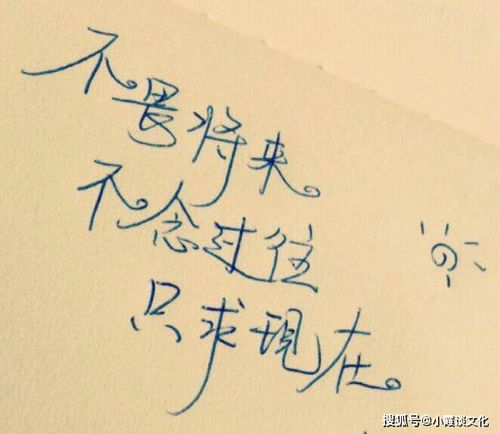 不畏将来。
不念过往
只求現在。
搜狐号@小霞谈文化